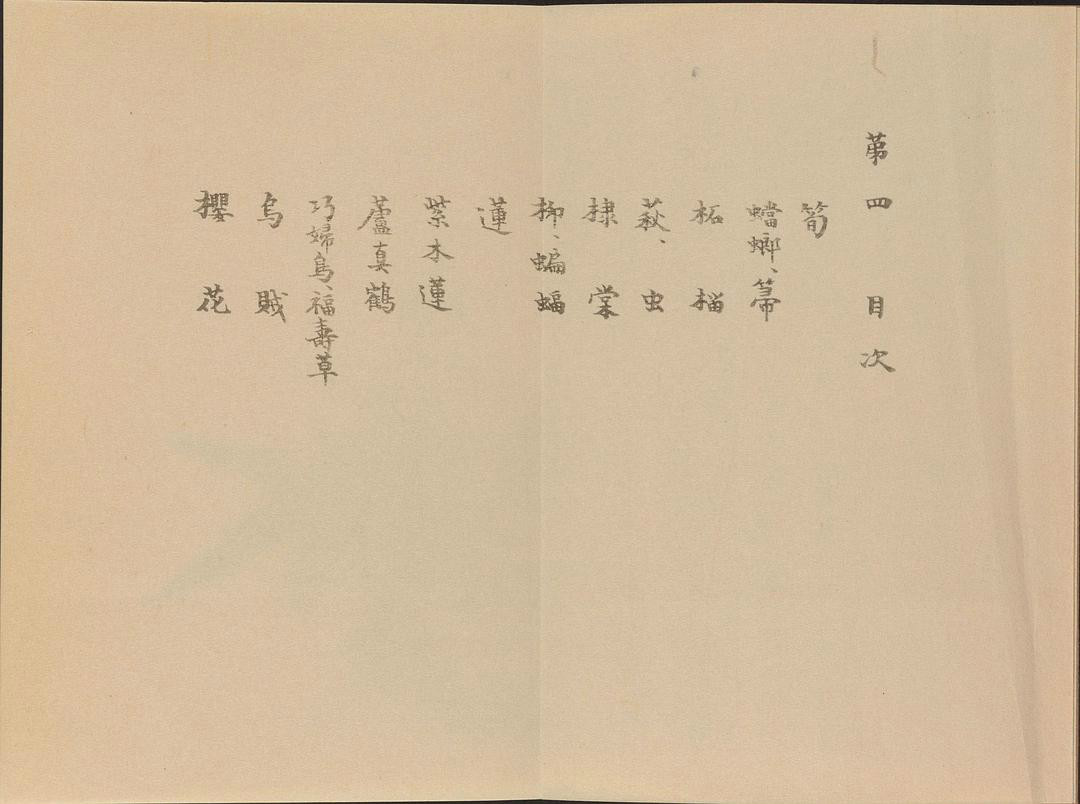 第四目次
筍
蟷螂、箒
柘榴
萩、虫
棣棠
柳、蝙蝠
蓮
紫木蓮
蘆真鶴
巧婦鳥、福壽草
烏賊
櫻花